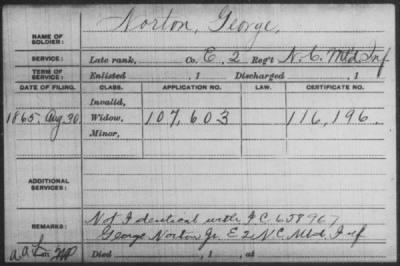 Norton, George,
NAME OF SOLDIER:
SERVICE: Late rank, Co. E, 2 Reg't N.C. Mtd Inf
TERM OF SERVICE: Enlisted , 1 Discharged , 1
DATE OF FILING. CLASS. APPLICATION NO. LAW. CERTIFICATE NO.
Invalid,
1865, Aug 30. Widow, 107,603 116,196.
Minor,
ADDITIONAL SERVICES:
REMARKS: Not Identical with I C 658967
George Norton Jr. E 2 N C Mtd. Inf
Died , 1 , at